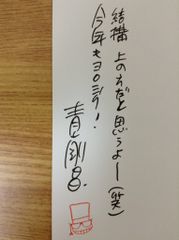 結構 上の方だと思うよー(笑)
今年もヨロシク!
青山剛昌